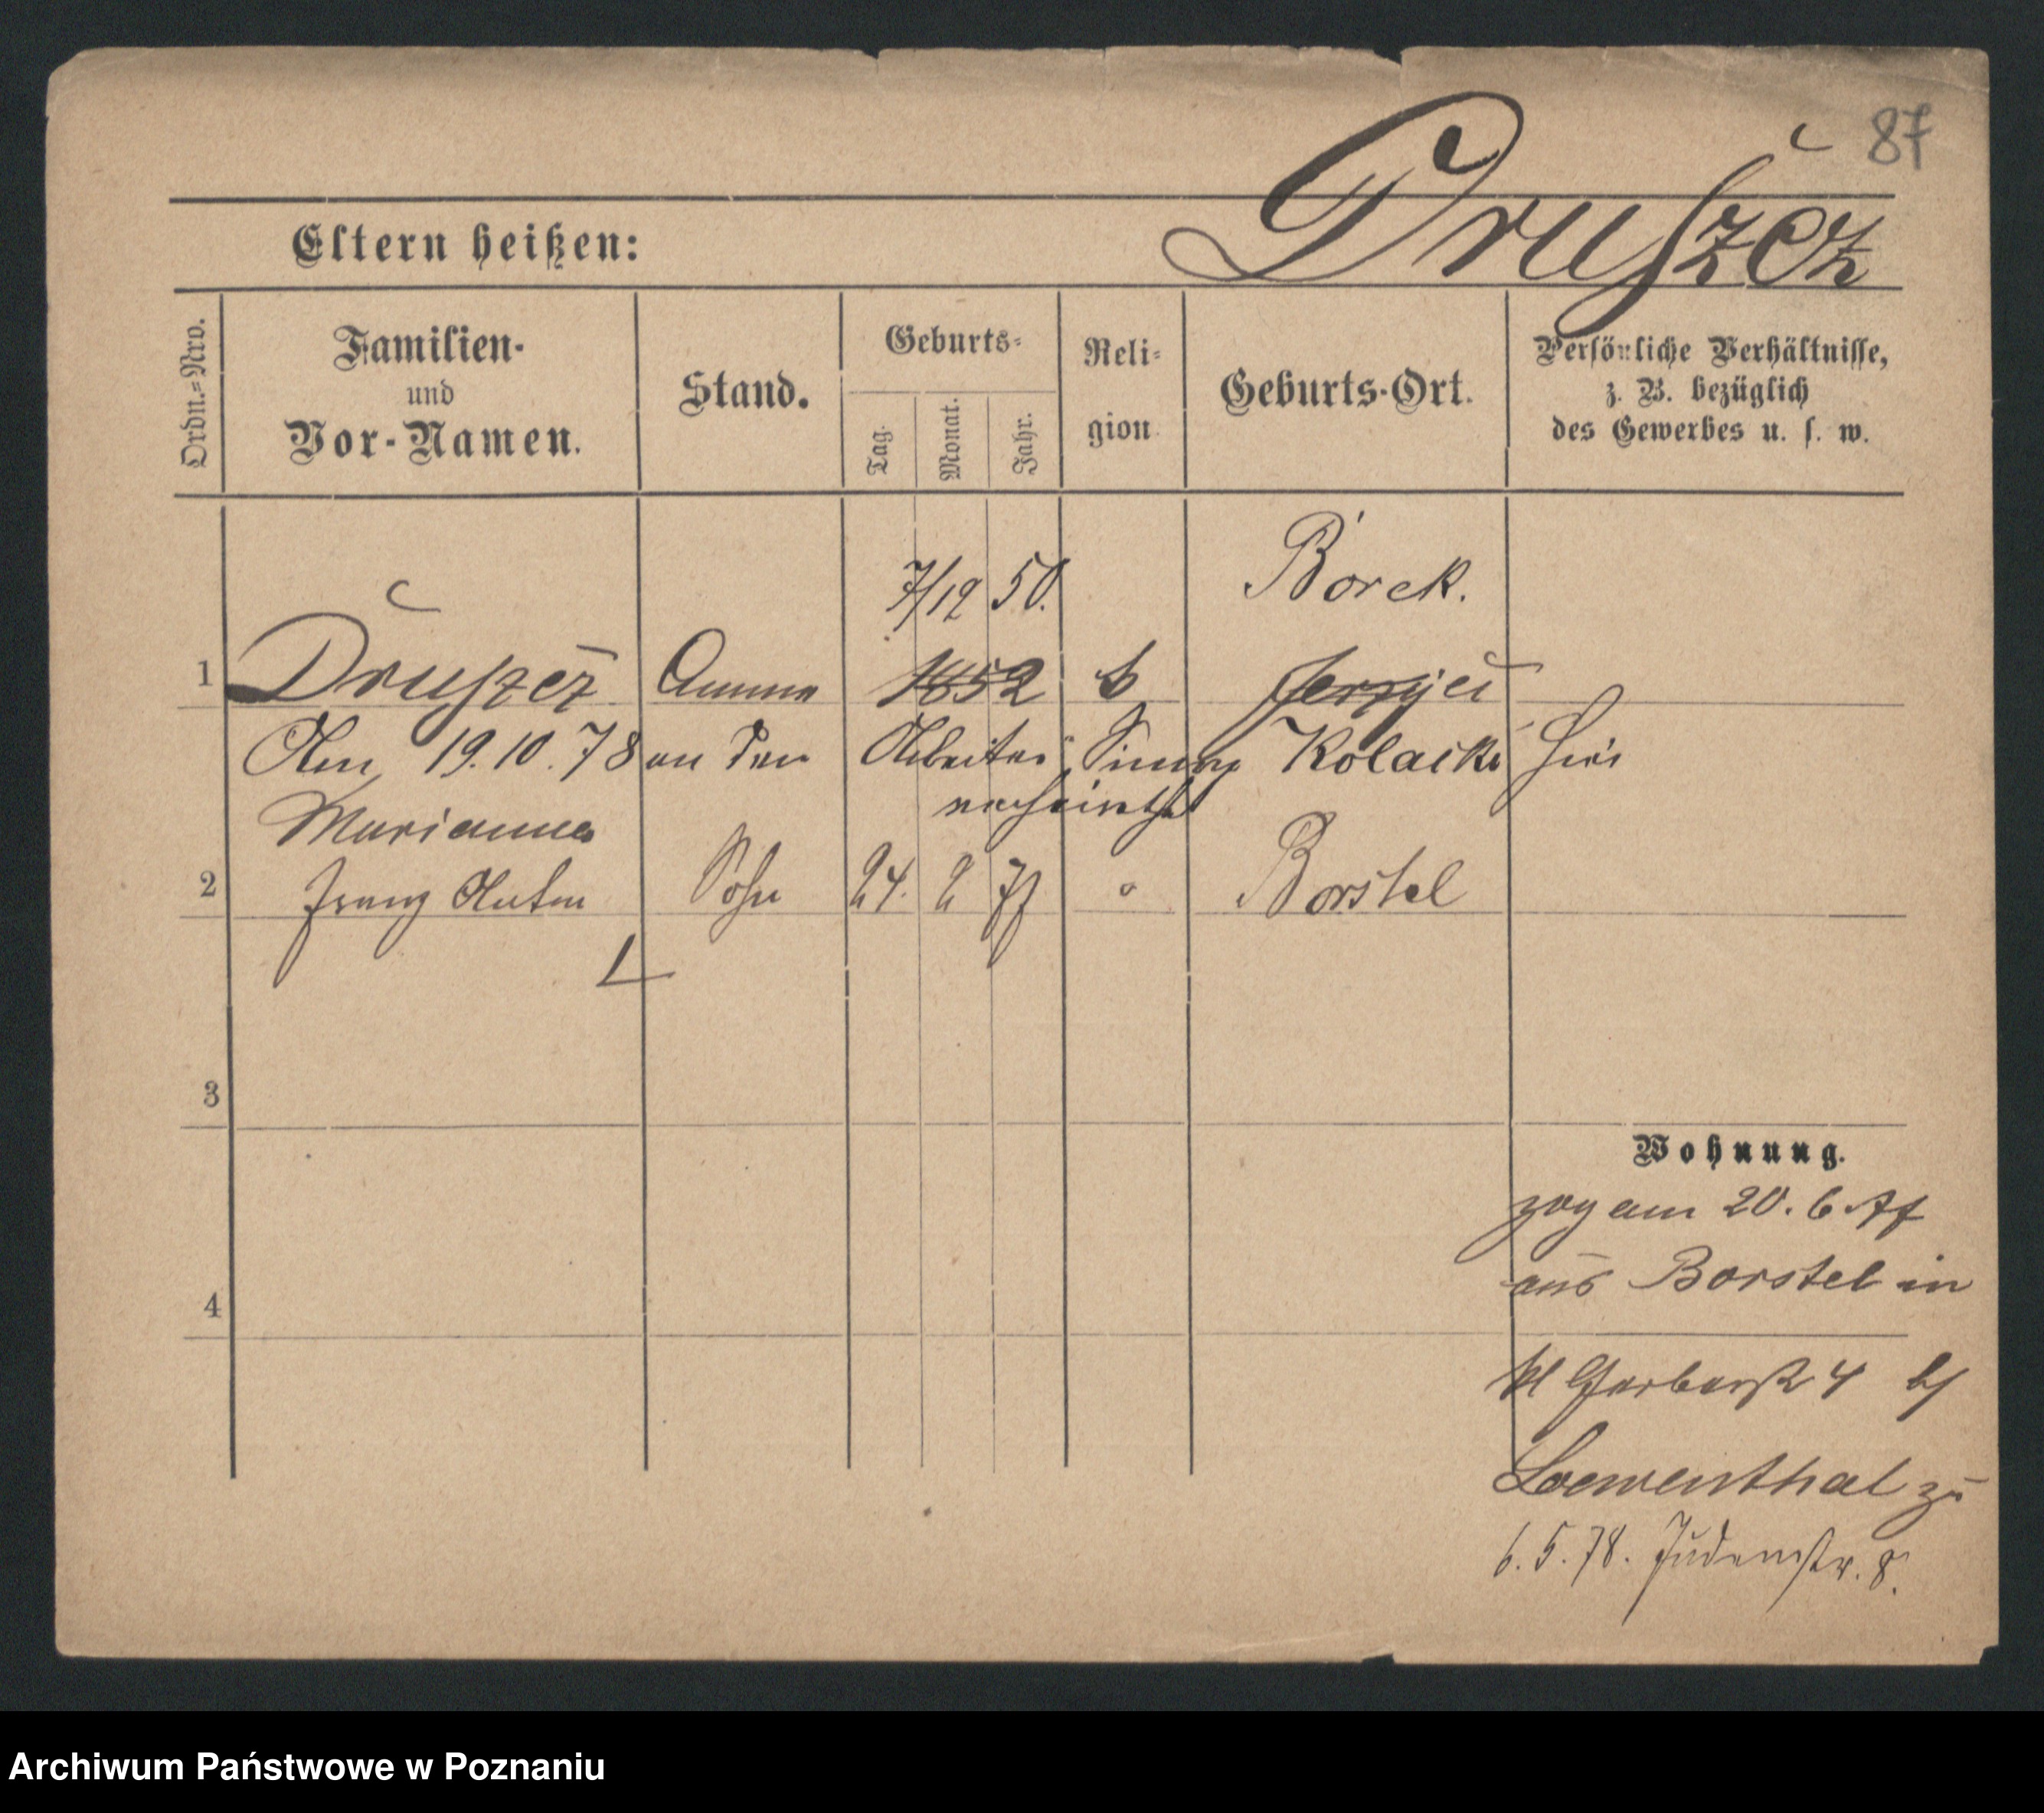 87
Druszcz
Eltern heißen:
Ordn.-Nro.
Familien-
und
Vor-Namen.
Stand.
Geburts-
Tag.
Monat.
Jahr.
Reli-
gion
Geburts-Ort.
Persönliche Verhältnisse,
z. B. bezüglich
des Gewerbes u. s. w.
7/12 50. Borek.
1 Druszcz Amme 1852
Am 19.10.78 an den Arbeiter Kolacki hier
verheirathet
Marianna
2 Franz Anton Sohn 24. 2 77 Borstel
3
4
Wohnung.
zog am 20. 6 77
aus Borstel in
Kl Gerberst 4 bei
Loewenthal zu
6. 5. 78. Judenstr. 8.
Archiwum Państwowe w Poznaniu